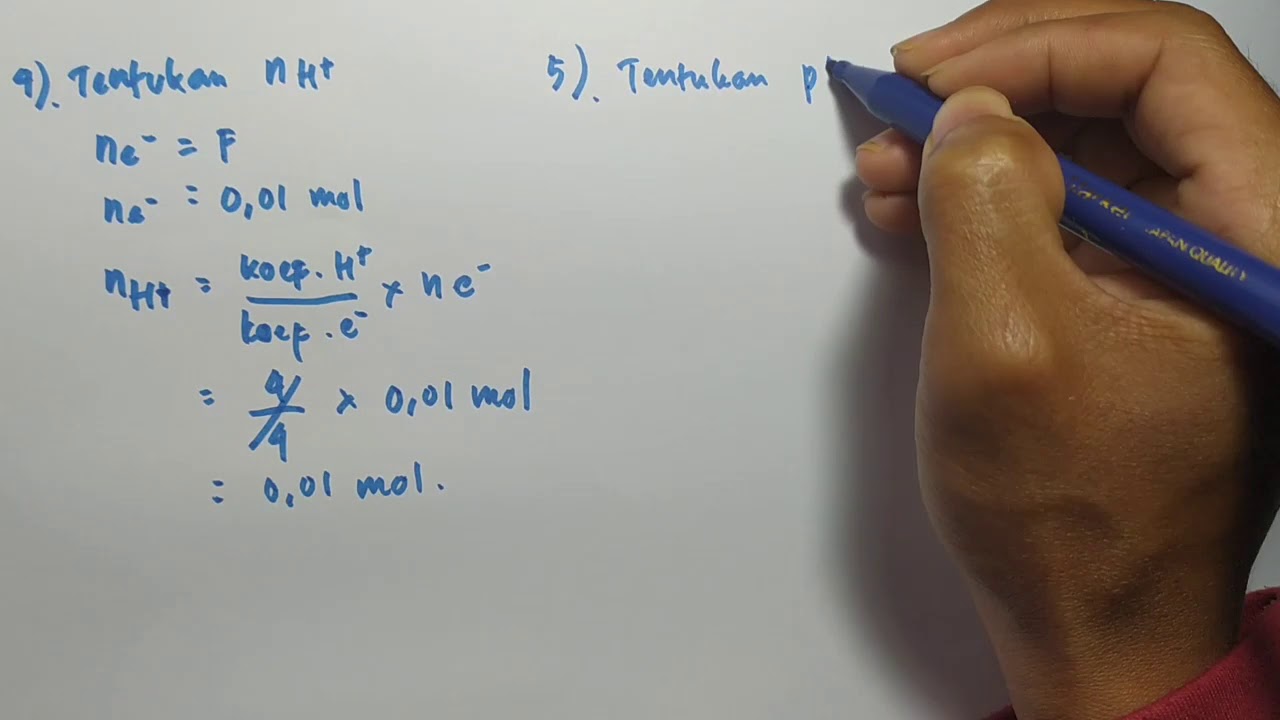 4). Tentukan nH⁺
ne⁻ = F
ne⁻ = 0,01 mol
nH⁺ = koef. H⁺ / koef. e⁻ × n e⁻
= 4/4 × 0,01 mol
= 0,01 mol.
5). Tentukan p
JAPAN QUALITY